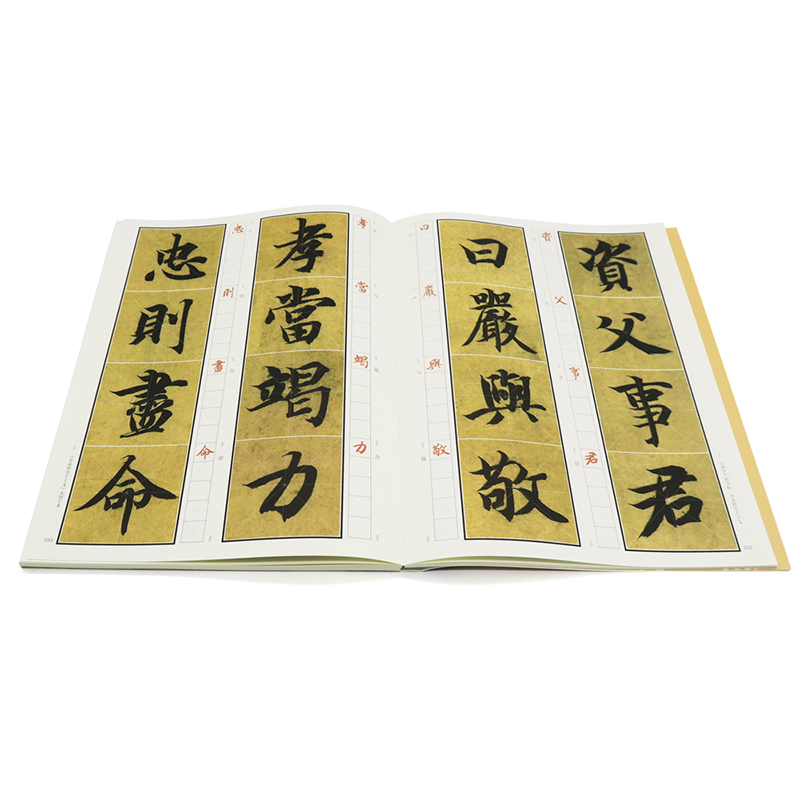 資父事君
資父事君
曰嚴與敬
曰嚴與敬
孝當竭力
孝當竭力
忠則盡命
忠則盡命